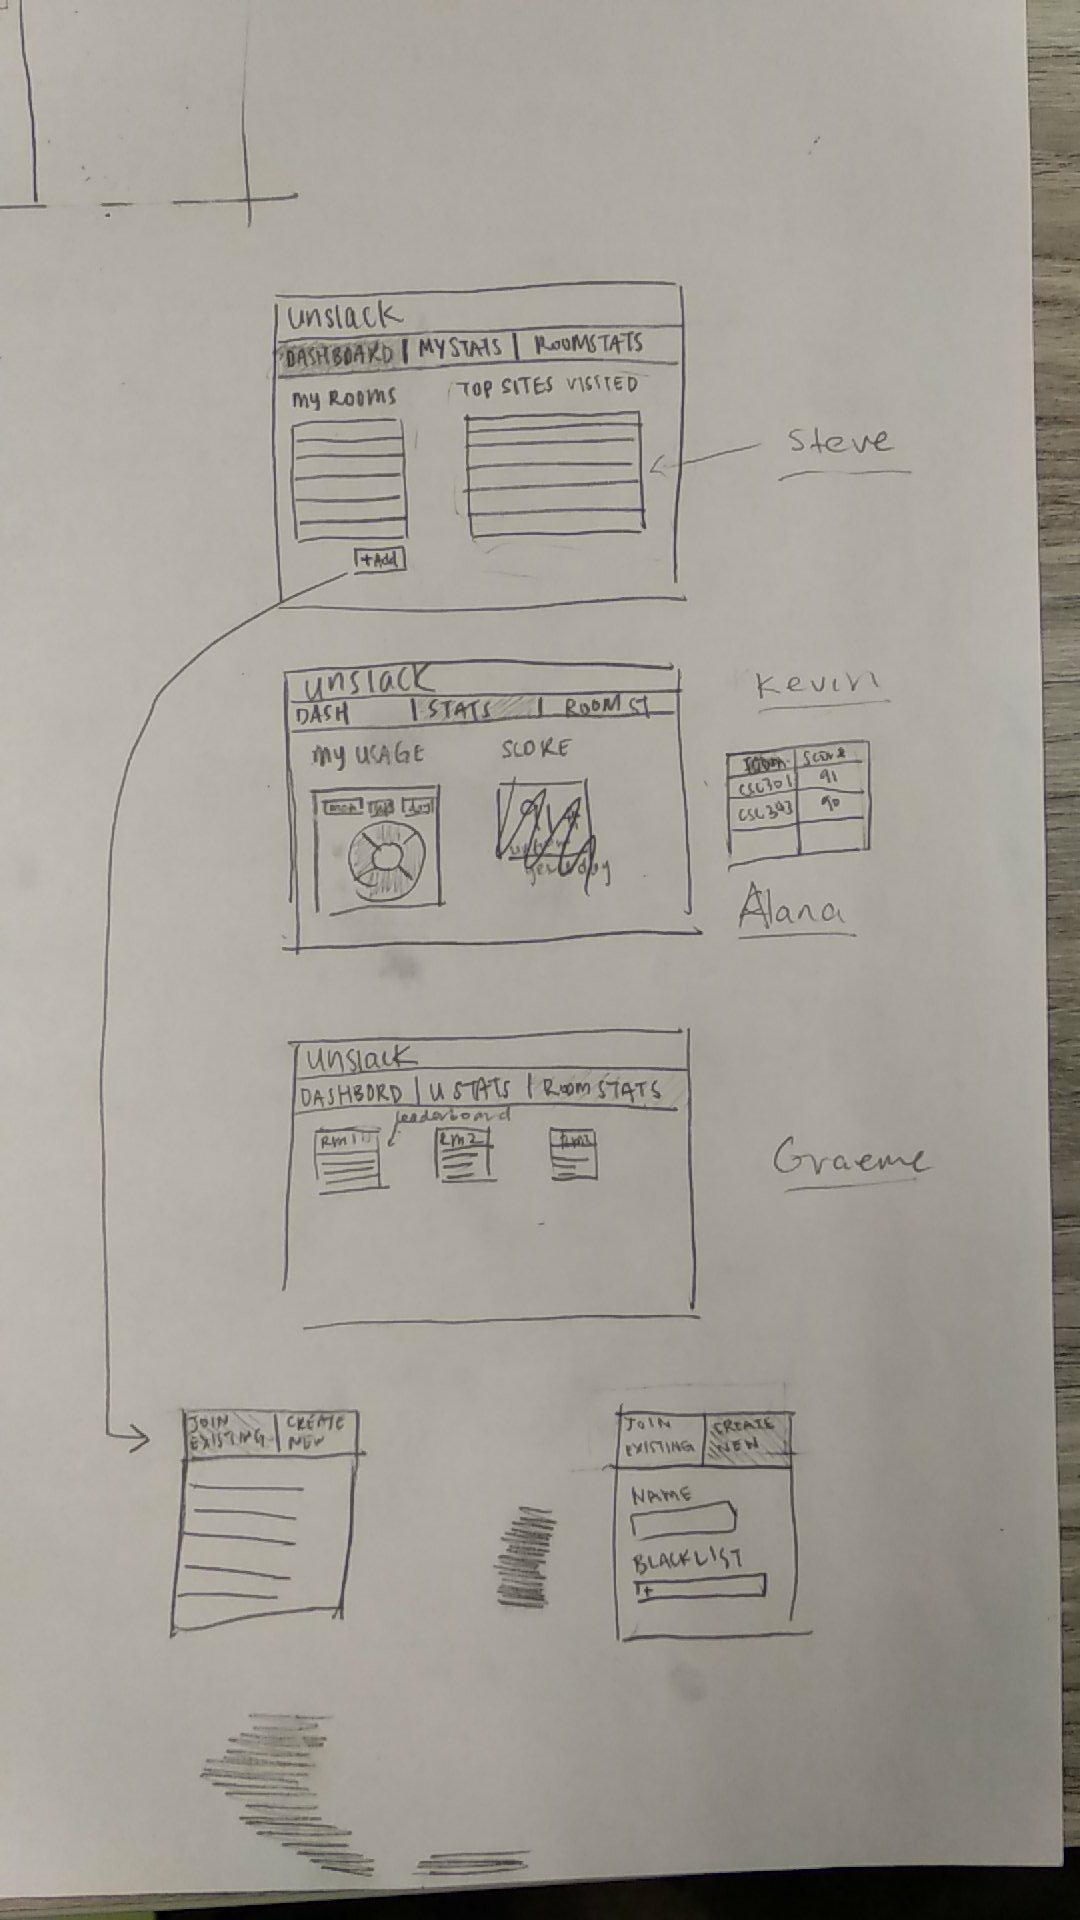 unslack
DASHBOARD | MY STATS | ROOMSTATS
MY ROOMS
TOP SITES VISITED
Steve
+Add
unslack
DASH | STATS | ROOM ST
Kevin
MY USAGE
SCORE
day
Score
CSC301 91
CSC343 90
Alana
unslack
DASHBORD | U STATS | ROOM STATS
leaderboard
Rm1
Rm2
Graeme
JOIN EXISTING
CREATE NEW
JOIN EXISTING
CREATE NEW
NAME
BLACKLIST
+